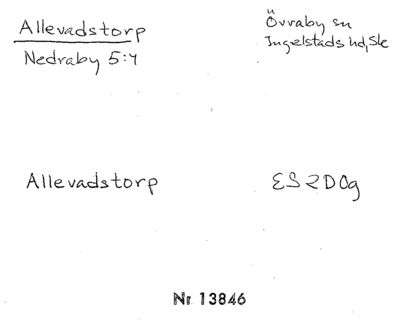 Allevadstorp
Nedraby 5:4
Övraby sn
Ingelstads hd, Sk
Allevadstorp
ES 2D 0g
Nr 13846